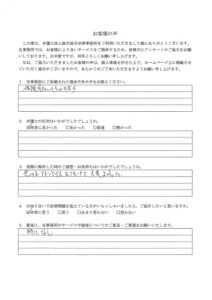 お客様の声
この度は、弁護士法人鈴木総合法律事務所をご利用いただきまして誠にありがとうございます。
当事務所では、お客様により良いサービスをご提供するため、皆様方にアンケートのご協力をお願
いしております。お手数ですが、何卒ご協力くださいますようお願い申し上げます。
なお、ご記入いただきましたお客様の声は、個人情報を伏せた上で、ホームページ上に掲載させ
ていただく場合がございますので、あらかじめご了承いただきますようお願い申し上げます。
1 当事務所にご依頼された理由や決め手をお教えください。
2 弁護士の応対はいかがでしたでしょうか。
①非常に良かった ②良かった ③普通 ④悪かった
3 実際に解決した時のご感想・お気持ちはいかがでしたでしょうか。
4 お知り合いで法律問題を抱えている方がいらっしゃいましたら、ご紹介したいと思いますか。
①非常に思う ②思う ③あまり思わない ④思わない
5 最後に、当事務所のサービスや接客についてのご意見・ご要望をお願いいたします。
特になし